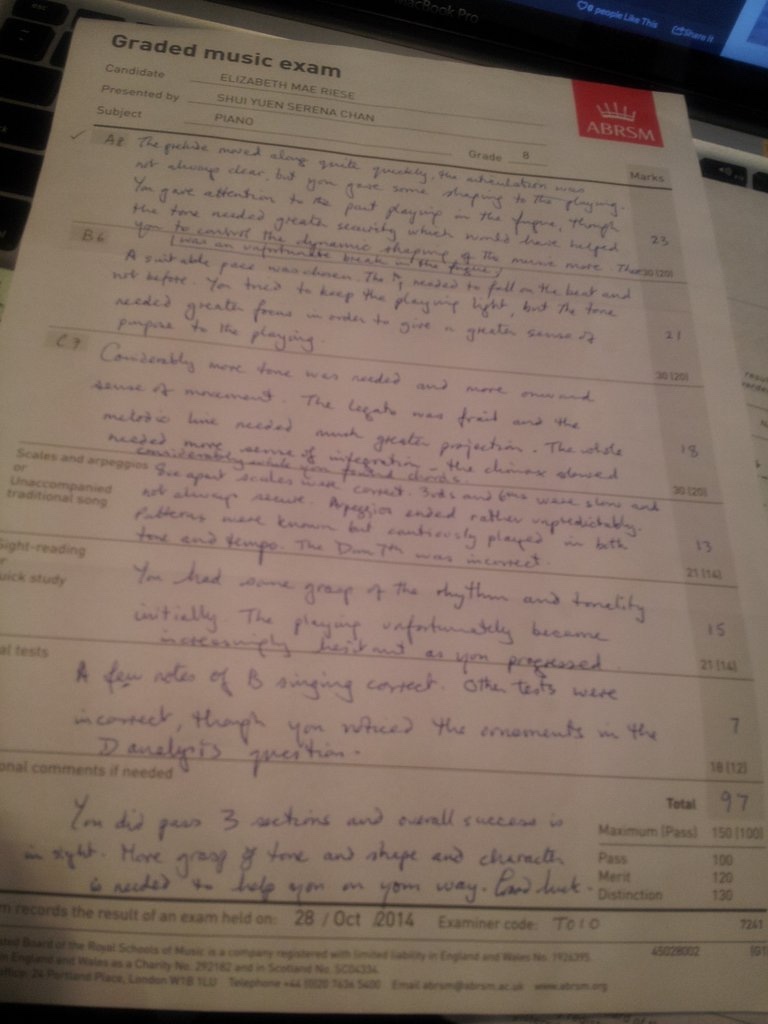 esc
MacBook Pro
0 people Like This
Share it
Graded music exam
Candidate ELIZABETH MAE RIESE
Presented by SHUI YUEN SERENA CHAN
Subject PIANO
Grade 8
ABRSM
Marks
A2 The prelude moved along quite quickly, the articulation was
not always clear, but you gave some shaping to the playing.
You gave attention to the part playing in the fugue, though
the tone needed greater security which would have helped 23
you to control the dynamic shaping of the music more. There 30 (20)
(was an unfortunate break in the fugue)
B6 A suitable pace was chosen. The needed to fall on the beat and
not before. You tried to keep the playing light, but the tone
needed greater focus in order to give a greater sense of 21
purpose to the playing.
30 (20)
C7 Considerably more tone was needed and more onward
sense of movement. The legato was frail and the
melodic line needed much greater projection. The whole 18
needed more sense of integration - the climax slowed
considerably while you found chords. 30 (20)
Scales and arpeggios
or
Unaccompanied
traditional song
8ve apart scales were correct. 3rds and 6ths were slow and
not always secure. Arpeggios ended rather unpredictably.
Patterns were known but cautiously played in both 13
tone and tempo. The Dim 7th was incorrect.
21 (14)
Sight-reading
or
uick study
You had some grasp of the rhythm and tonality
initially The playing unfortunately became 15
increasingly hesitant as you progressed.
21 (14)
al tests
A few notes of B singing correct. Other tests were
incorrect, though you noticed the ornaments in the 7
D analysis question.
18 (12)
onal comments if needed
Total 97
You did pass 3 sections and overall success is
in sight. More grasp of tone and shape and character
is needed to help you on your way. Good luck.
Maximum (Pass) 150 (100)
Pass 100
Merit 120
Distinction 130
m records the result of an exam held on: 28 / Oct / 2014 Examiner code: TO10 7261
ated Board of the Royal Schools of Music is a company registered with limited liability in England and Wales No. 1926395
in England and Wales as a Charity No. 292182 and in Scotland No. SC04334 45028002
office: 24 Portland Place, London W1B 1LU Telephone +44 (0)20 7636 5400 Email abrsm@abrsm.ac.uk www.abrsm.org